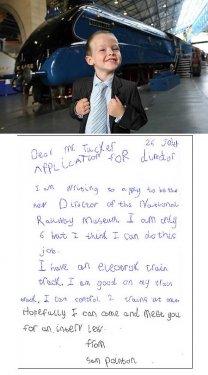 Dear Mr. Tucker 26 July
APPLICATION FOR director
I am writing to apply to be the
new Director of the National
Railway Museum. I am only
6 but I think I can do this
job.
I have an electronic train
track. I am good on my train
track. I can control 2 trains at once
Hopefully I can come and meet you
for an
from
Sam Pointon